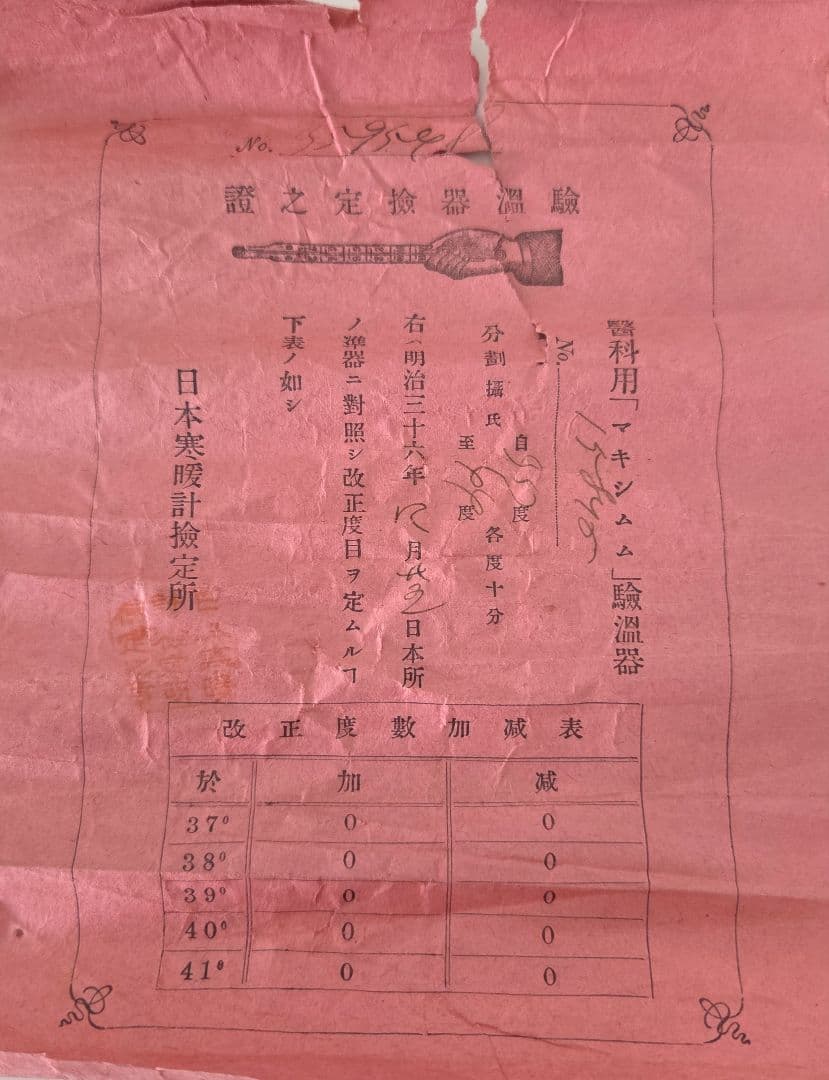 No.
驗溫器撿定之證
醫科用「マキシムム」驗溫器
No.
分劃攝氏自 度至 度各度十分
右ハ明治三十六年 月 日本所
ノ準器ニ對照シ改正度目ヲ定ムルヿ
下表ノ如シ
日本寒暖計撿定所
改正度數加减表
於 加 减
37° 0 0
38° 0 0
39° 0 0
40° 0 0
41° 0 0